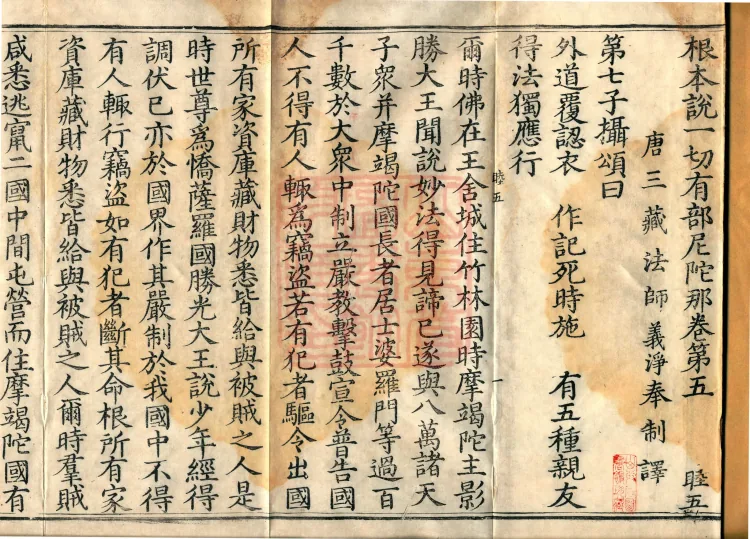 根本說一切有部尼陀那卷第五 睦五
唐三藏法師義淨奉制譯
第七子攝頌曰
外道覆認衣 作記死時施 有五種親友
得法獨應行
睦五 一
爾時佛在王舍城住竹林園時摩竭陀主影
勝大王聞說妙法得見諦已遂與八萬諸天
子眾并摩竭陀國長者居士婆羅門等過百
千數於大眾中制立嚴教擊鼓宣令普告國
人不得有人輒為竊盜若有犯者驅令出國
所有家資庫藏財物悉皆給與被賊之人是
時世尊為憍薩羅國勝光大王說少年經得
調伏已亦於國界作其嚴制於我國中不得
有人輒行竊盜如有犯者斷其命根所有家
資庫藏財物悉皆給與被賊之人爾時羣賊
咸悉逃竄二國中間屯營而住摩竭陀國有